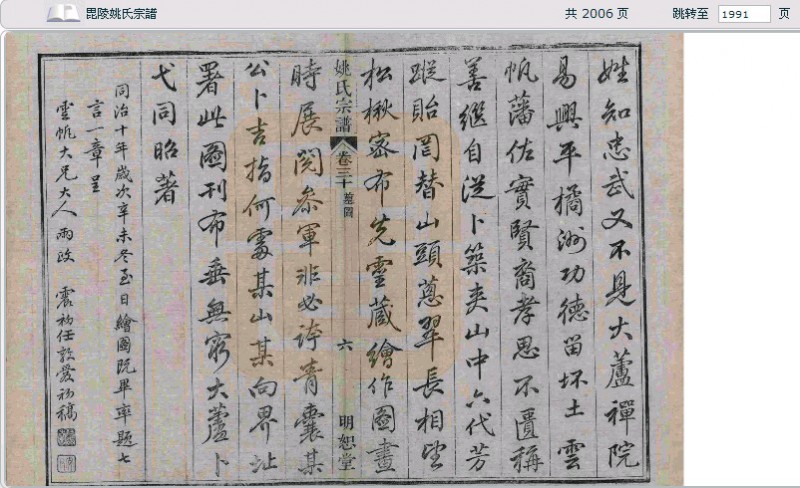 毘陵姚氏宗譜
共 2006 页
跳转至 1991 页
姓知忠武又不見大蘆禪院
易興平橘洲功德留坏土雲
帆藩佐實賢裔孝思不匱稱
善繼自從卜築夾山中六代芳
蹤貽罔替山頭蔥翠長相望
松楸密布先靈藏繪作圖畫
姚氏宗譜 卷三十 墓圖 六 明恕堂
時展閱參軍非必誇青囊某
公卜吉指何處某山某向界址
署此圖刊布垂無窮大蘆卜
弋同昭著
同治十年歲次辛未冬至日繪圖既畢率題七
言一章呈
雲帆大兄大人兩政 震初任敦愛初稿